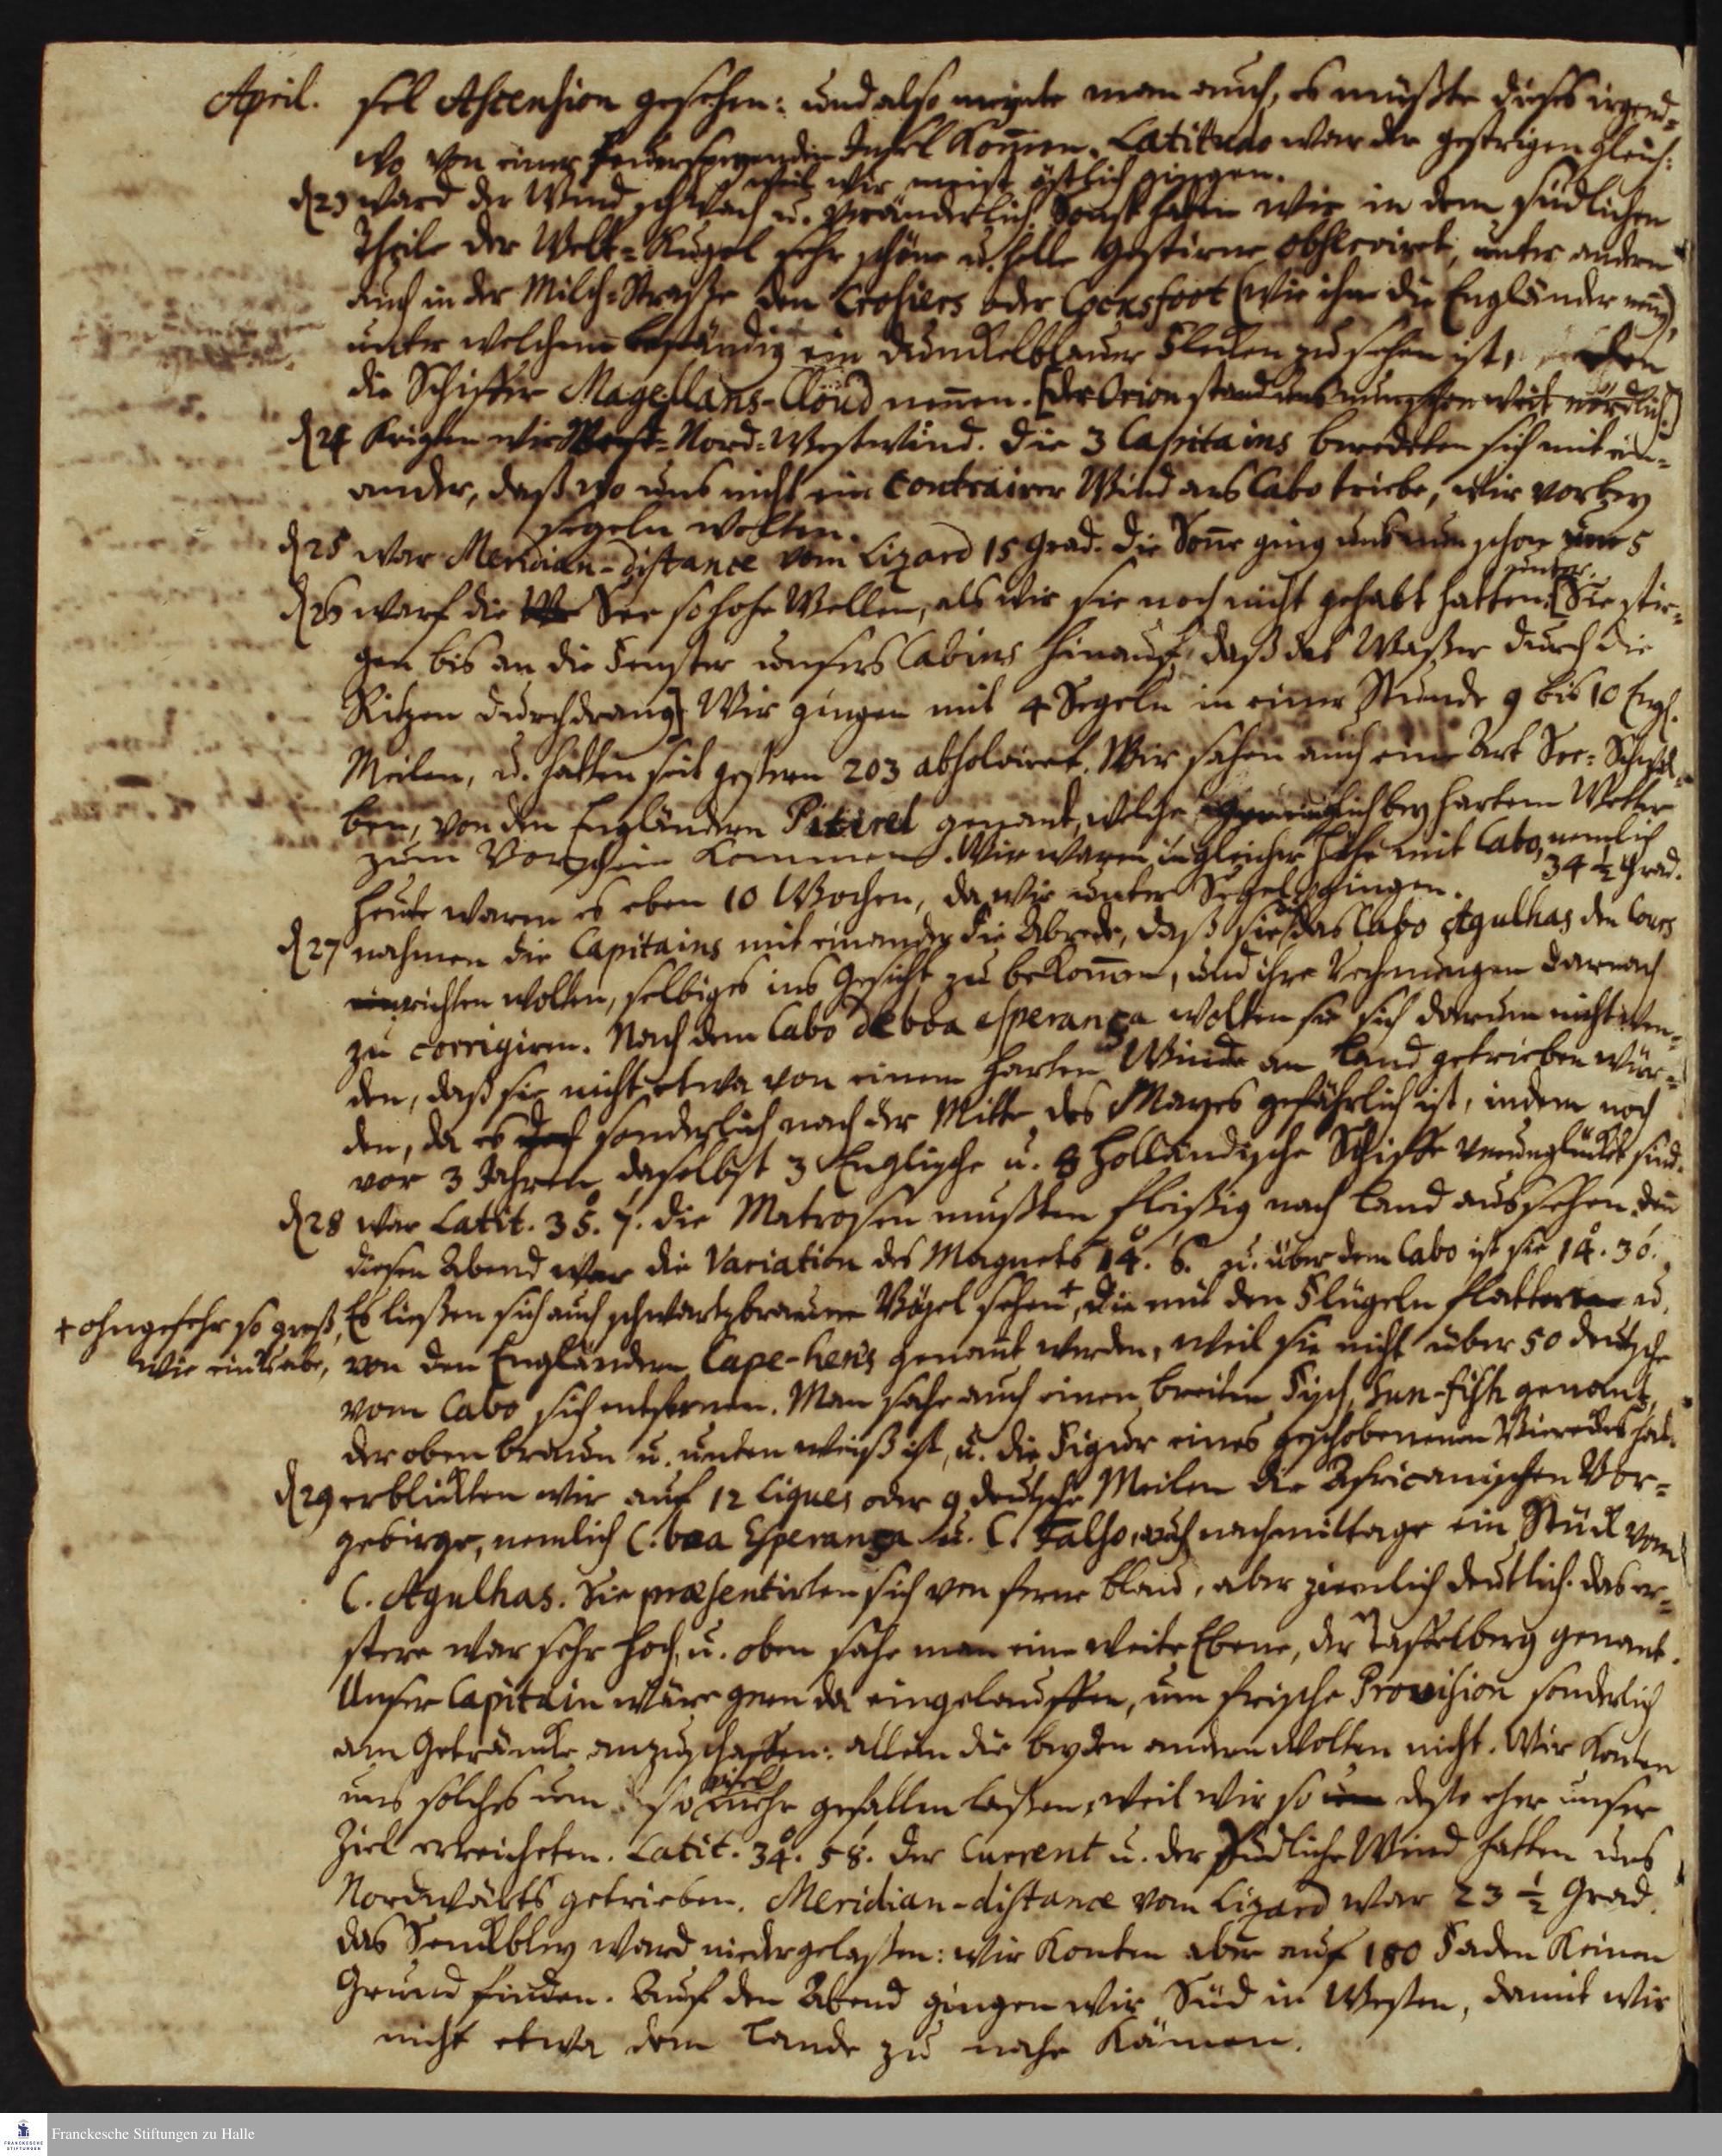 April. sel Ascension gesehen: und also meynte man auch, es müßte dieses irgend-
wo von einer Feuerspeyenden Insel kom̄en. Latitudo war der gestrigen gleich:
weil wir meist östlich gingen.
d 23 ward der Wind schwach u. veränderlich. Sonst haben wir in dem südlichen
Theile der Welt-Kugel sehr schöne u. helle Gestirne observiret, unter andern
auch in der Milch-Straße den Crosiers oder Cocksfoot (wie ihn die Engländer neñ)
unter welchem beständig ein dunckelblauer Flecken zu sehen ist, den
die Schiffer Magellans-Cloud neñen. [Der Orion stand uns nun schon weit nördlich.]
d 24 kriegten wir West-Nord-Westwind. Die 3 Capitains beredeten sich mit ein-
ander, daß wo uns nicht ein contrairer Wind ans Cabo triebe, wir vorbey
segeln wolten.
d 25 war Meridian-distance vom Lizard 15 Grad. Die Soñe ging uns nun schon um 5
unter.
d 26 warf die See so hohe Wellen, als wir sie noch nicht gehabt hatten. [Sie stie-
gen bis an die Fenster unsers Cabins hinauf, daß das Waßer durch die
Ritzen durchdrang] Wir gingen mit 4 Segeln in einer Stunde 9 bis 10 Engl.
Meilen, u. hatten seit gestern 203 absolviret. Wir sahen auch eine Art See-Schwal-
ben, von den Engländern Pitirel genant, welche gemeiniglich bey hartem Wetter
zum Vorschein kommen. Wir waren in gleicher Höhe mit Cabo, nemlich
34 ½ Grad.
Heute waren es eben 10 Wochen, da wir unter Segel gingen.
d 27 nahmen die Capitains mit einander die Abrede, daß sie das Cabo Agulhas den Cours
richten wolten, selbiges ins Gesicht zu bekom̄en, und ihre Rechnungen darnach
zu corrigiren. Nach dem Cabo de boa esperança wolten sie sich darum nicht wen-
den, daß sie nicht etwa von einem harten Winde an Land getrieben wür-
den, da es sonderlich nach der Mitte des Mayes gefährlich ist, indem noch
vor 3 Jahren daselbst 3 Englische u. 8 Holländische Schiffe verunglückt sind.
d 28 war Latit. 35°. 7'. die Matrosen mußten fleißig nach Land aussehen. Den
diesen Abend war die Variation des Magnets 14°. 6'. u. über dem Cabo ist sie 14°. 30'.
Es ließen sich auch schwartzbraune Vögel sehen +, die mit den Flügeln flattern u.
+ ohngefehr so groß,
wie ein Rabe,
von den Engländern Cape-hens genant werden, weil sie nicht über 50 deutsche
vom Cabo sich entfernen. Man sahe auch einen breiten Fisch, Sun-fish genant,
der oben braun u. unten weiß ist, u. die Figur eines geschobenen Viereckes hat.
d 29 erblickten wir auf 12 Ligues oder 9 deutsche Meilen die Africanischen Vor-
gebirge, nemlich C. boa Esperança u. C. Falso, auch nachmittage ein Stück vom
C. Agulhas. Sie præsentirten sich von ferne blau, aber ziemlich deutlich. Das er-
stere war sehr hoch, u. oben sahe man eine weite Ebene, der Taffelberg genant.
Unser Capitain wäre gern da eingelauffen, um frische Provision sonderlich
am Geträncke anzuschaffen: allein die beyden andern wolten nicht. Wir konten
uns solches um so viel mehr gefallen laßen, weil wir so desto eher unser
Ziel erreicheten. Latit. 34°. 58'. Der Current u. der südliche Wind hatten uns
Nordwärts getrieben. Meridian-distance vom Lizard war 23 ½ Grad.
das Senckbley ward niedergelaßen: wir konten aber auf 180 Faden keinen
Grund finden. Auf den Abend gingen wir Süd in Westen, damit wir
nicht etwa dem Lande zu nahe kämen.
Franckesche Stiftungen zu Halle
FRANCKESCHE
STIFTUNGEN